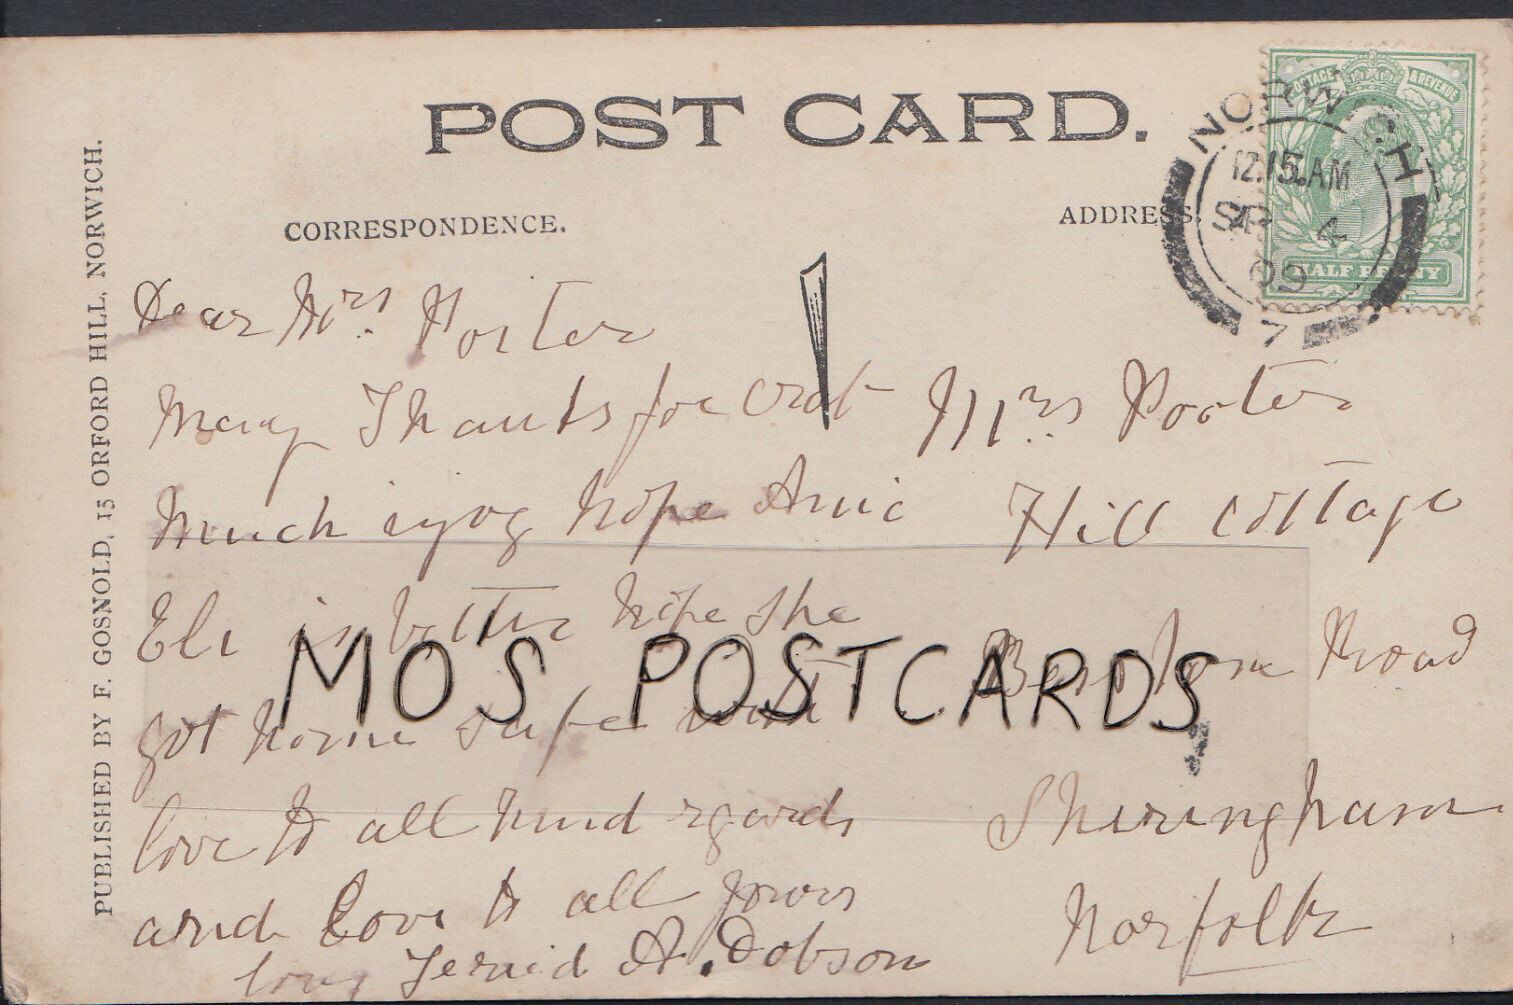 POST CARD.
CORRESPONDENCE.
ADDRESS.
PUBLISHED BY F. GOSNOLD, 15 ORFORD HILL, NORWICH.
POSTAGE & REVENUE
HALF PENNY
NORWICH
12.15.AM
SP 4
09
7
Dear Mrs. Porter
Many Thanks for Crab
Much injoy hope
is better hope she
got home safe with
love to all kind rgards
and Love to all yours
A. Dobson
Mrs. Porter
Hill Cottage
Road
Sheringham
Norfolk
MO'S POSTCARDS